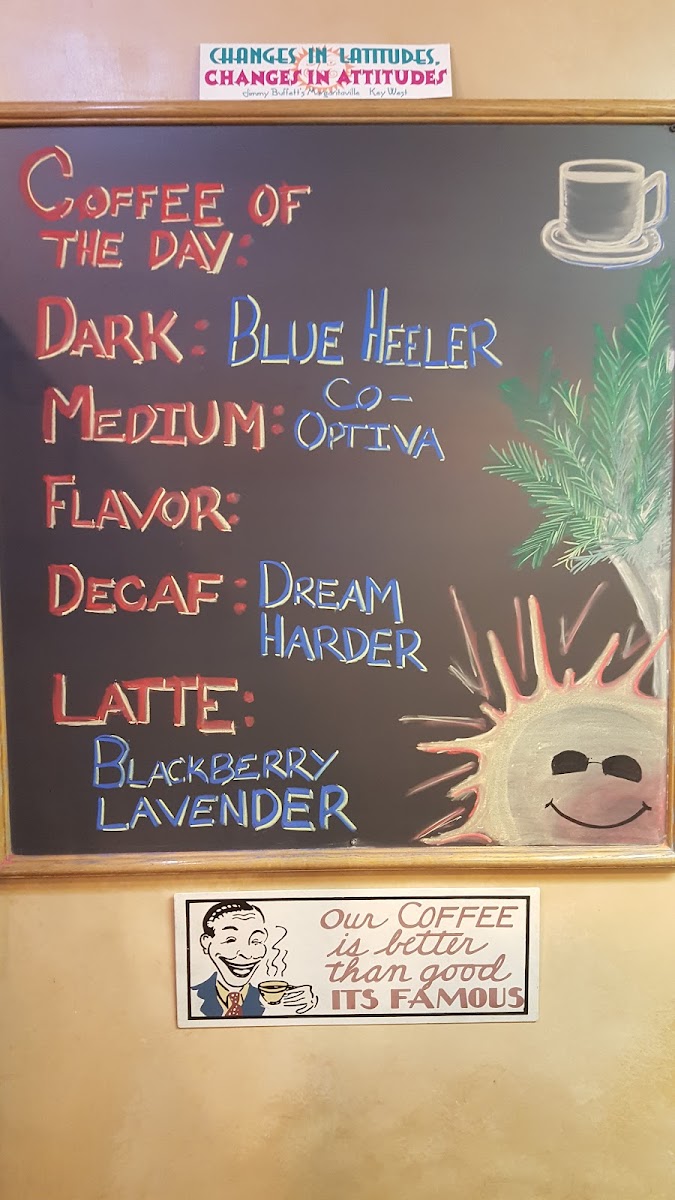 CHANGES IN LATITUDES,
CHANGES IN ATTITUDES
Jimmy Buffett's Margaritaville Key West
COFFEE OF
THE DAY:
DARK: BLUE HEELER
MEDIUM: CO-
OPTIVA
FLAVOR:
DECAF: DREAM
HARDER
LATTE:
BLACKBERRY
LAVENDER
OUR COFFEE
is better
than good
ITS FAMOUS